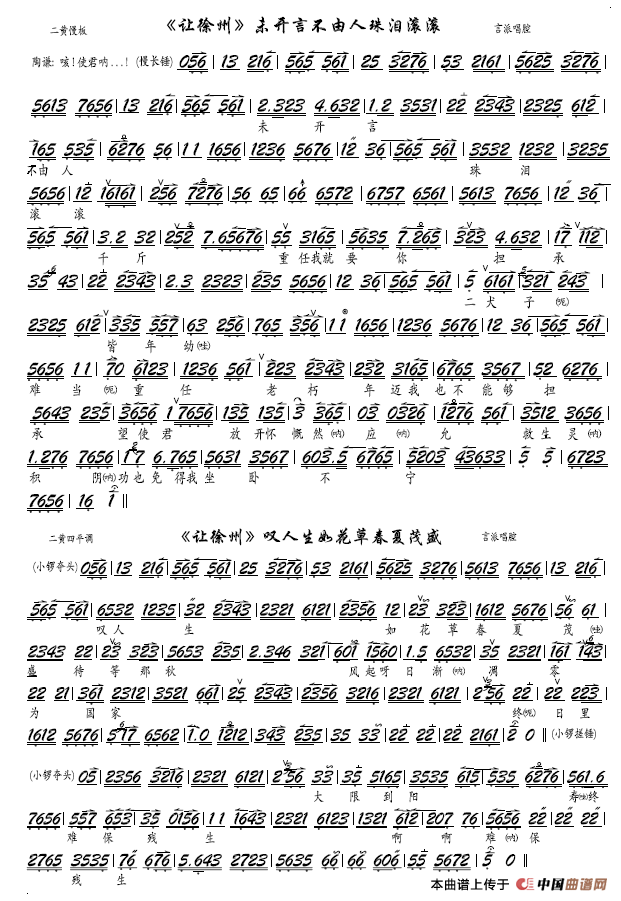 二黄慢板 《让徐州》未开言不由人珠泪滚滚 言派唱腔
陶谦: 咳!使君呐...! (慢长锤) 056 | 13 216 | 565 561 | 25 3276 | 53 2161 | 5625 3276 |
5613 7656 | 13 216 | 565 561 | 2.323 4.632 | 1.2 3531 | 22 2343 | 2325 612 |
未 开 言
165 535 | 6276 56 | 11 1656 | 1236 5676 | 12 36 | 565 561 | 3532 1232 | 3235
不由人 珠 泪
5656 | 12 16161 | 256 7276 | 56 65 | 66 6572 | 6757 6561 | 5613 7656 | 12 36 |
滚 滚
565 561 | 3.2 32 | 252 7.65676 | 55 3165 | 5635 7.265 | 323 4.632 | 17 112 |
千 斤 重 任我就 要 你 担 承
35 43 | 22 2343 | 2.3 2323 | 235 5656 | 12 36 | 565 561 | 5 6161 | 321 243 |
二 犬 子 (呃)
2325 612 | 335 557 | 63 256 | 765 356 | 11 1656 | 1236 5676 | 12 36 | 565 561 |
皆 年 幼(哇)
5656 11 | 70 6123 | 1236 561 | 223 2343 | 232 3165 | 6765 3567 | 52 6276 |
难 当 (呃) 重 任 老 朽 年 迈我 也 不 能 够 担
5643 235 | 3656 1 7656 | 135 135 | 3 365 | 03 0326 | 1276 561 | 3512 3656 |
承 望使君 放开怀 慨然(呐) 应(呐) 允 救生灵(呐)
1.276 7656 | 17 6.765 | 5631 3567 | 603.5 6765 | 5203 43633 | 5 5 | 6723
积 阴(呐)功也免 得我坐 卧 不 宁
7656 | 16 1 ‖
二黄四平调 《让徐州》叹人生如花草春夏茂盛 言派唱腔
(小锣夺头) 056 | 13 216 | 2321 2356 | 3235 3276 | 53 2161 | 5625 3276 | 5613 7656 | 13 216 |
565 561 | 6532 1235 | 32 2343 | 2321 6121 | 2356 123 | 323 1612 5676 | 56 61 |
叹人 生 如 花 草 春 夏 茂 (哇)
2343 22 | 23 323 | 5653 235 | 2.346 321 | 601 1560 | 1.5 6532 | 2321 161 143
盛 待 等 那 秋 风起呀 日 渐(呐) 凋 零
22 21 | 361 2312 | 3521 661 | 25 2343 | 2356 3216 | 2321 6121 | 256 22 | 22 223 |
为 国家 终(呃)日里
1612 5676 | 617 6562 | 1.0 1212 | 343 235 | 35 33 | 22 22 | 22 2161 | 2 0 ‖ (小锣搓锤)
(小锣夺头) 05 | 2356 3216 | 2321 6121 | 256 33 | 35 5165 | 3535 615 | 535 6276 | 561.6
大 限 到 阳 寿(哇)终
7656 | 557 653 | 35 0156 | 11 1643 | 2321 6123 | 1321 612 | 207 76 | 5656 22 | 22 22 |
难 保 残 生 啊 啊 难(呐) 保
2765 3535 | 76 676 | 5.643 2723 | 5635 66 | 66 606 | 55 5672 | 5 0 ‖
残 生
本曲谱上传于 中国曲谱网